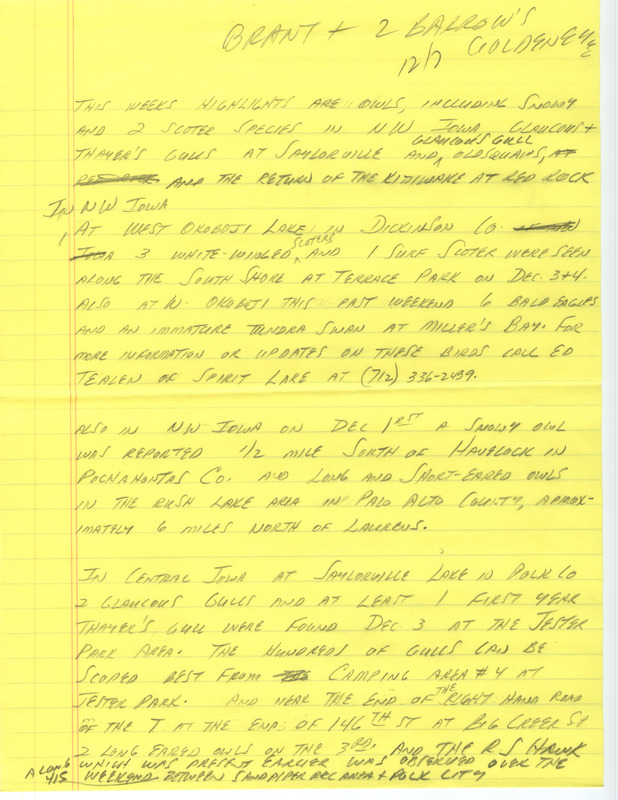 BRANT + 2 BARROW'S
12/7 GOLDENEYE
THIS WEEKS HIGHLIGHTS ARE OWLS, INCLUDING SNOWY
AND 2 SCOTER SPECIES IN NW IOWA, GLAUCOUS +
THAYER'S GULLS AT SAYLORVILLE AND GLAUCOUS GULL, OLDSQUAWS,
AND THE RETURN OF THE KITTIWAKE AT RED ROCK
IN NW IOWA
AT WEST OKOBOJI LAKE IN DICKINSON CO.
3 WHITE-WINGED SCOTERS AND 1 SURF SCOTER WERE SEEN
ALONG THE SOUTH SHORE AT TERRACE PARK ON DEC. 3+4.
ALSO AT W. OKOBOJI THIS PAST WEEKEND 6 BALD EAGLES
AND AN IMMATURE TUNDRA SWAN AT MILLER'S BAY. FOR
MORE INFORMATION OR UPDATES ON THESE BIRDS CALL ED
OF SPIRIT LAKE AT (712) 336-2439.
ALSO IN NW IOWA ON DEC 1RST A SNOWY OWL
WAS REPORTED 1/2 MILE SOUTH OF HAVELOCK IN
POCHAHONTAS CO. AND LONG AND SHORT-EARED OWLS
IN THE RUSH LAKE AREA IN PALO ALTO COUNTY, APROX-
IMATELY 6 MILES NORTH OF LAURENS.
IN CENTRAL IOWA AT SAYLORVILLE LAKE IN POLK CO
2 GLAUCOUS GULLS AND AT LEAST 1 FIRST YEAR
THAYER'S GULL WERE FOUND DEC. 3 AT THE JESTER
PARK AREA. THE HUNDREDS OF GULLS CAN BE
SCOPED BEST FROM CAMPING AREA #4 AT
JESTER PARK. AND NEAR THE END OF THE RIGHT HAND ROAD
OF THE T AT THE END OF 146TH ST AT BIG CREEK SP
2 LONG EARED OWLS ON THE 3RD. AND THE RS HAWK
WHICH WAS PRESENT EARLIER WAS OBSERVED OVER THE
WEEKEND ALONG 415 BETWEEN SANDPIPER REC AREA + POLK CITY